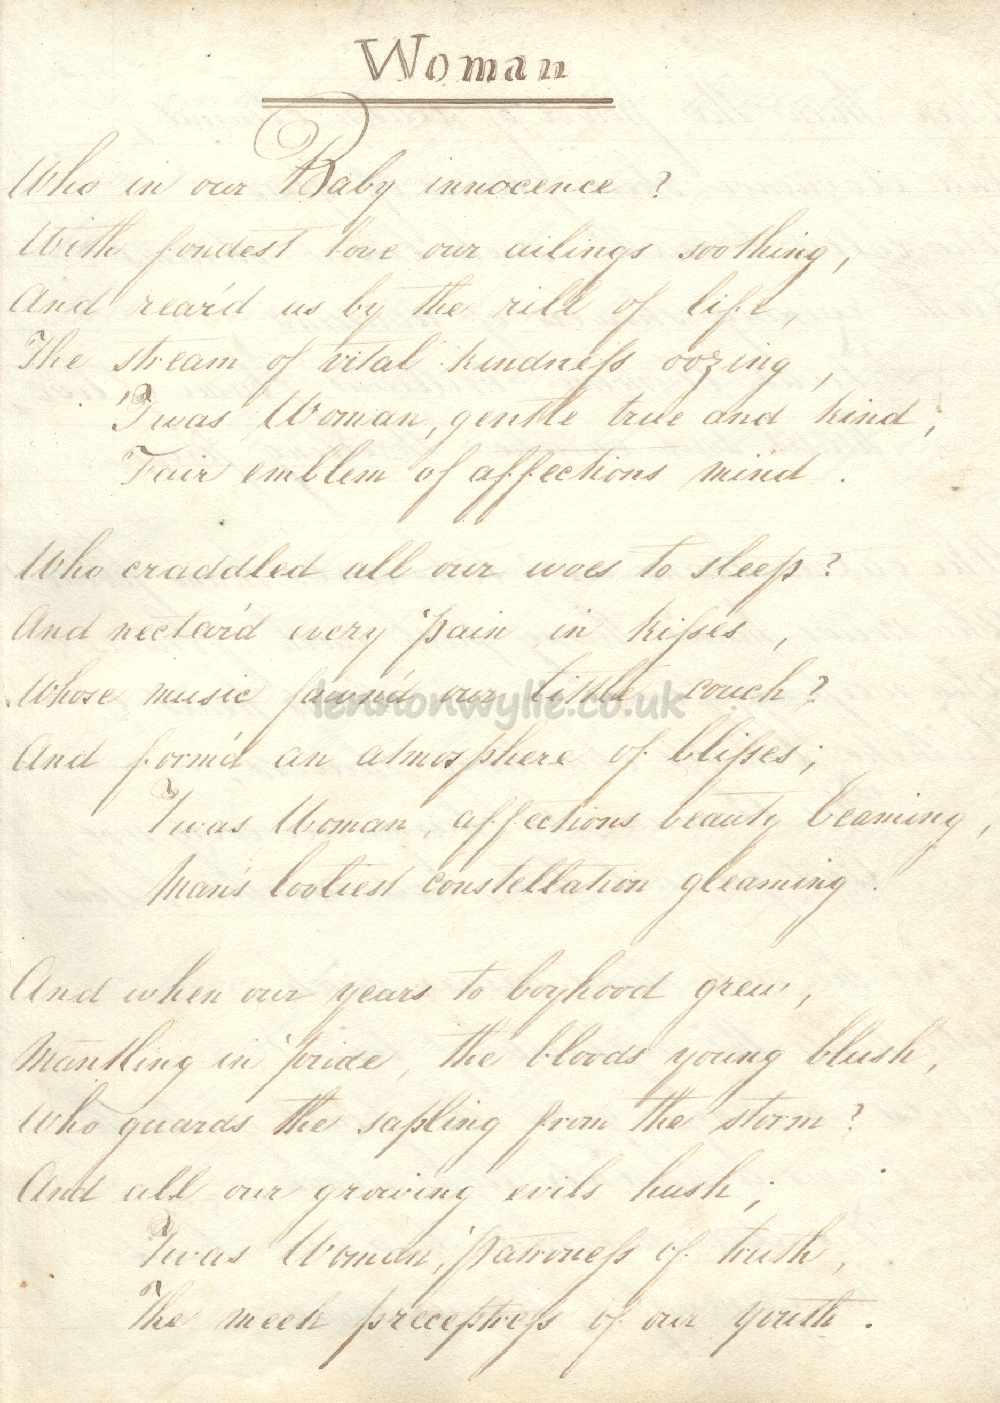 Woman
Who in our Baby innocence ?
With fondest love our ailings soothing,
And rear'd us by the rill of life,
The stream of vital kindneſs oozing,
'Twas Woman, gentle true and kind;
Fair emblem of affections mind.
Who craddled all our woes to sleep?
And nectar'd every pain in kiſses,
Whose music our little couch?
lennonwylie.co.uk
And form'd an atmosphere of bliſses;
'Twas Woman, affections beauty beaming,
Man's constellation gleaming.
And when our years to boyhood grew,
Mantling in pride, the bloods young blush,
Who guards the sapling from the storm?
And all our growing evils hush;
'Twas Woman, patroneſs of truth,
The meek preceptreſs of our youth.